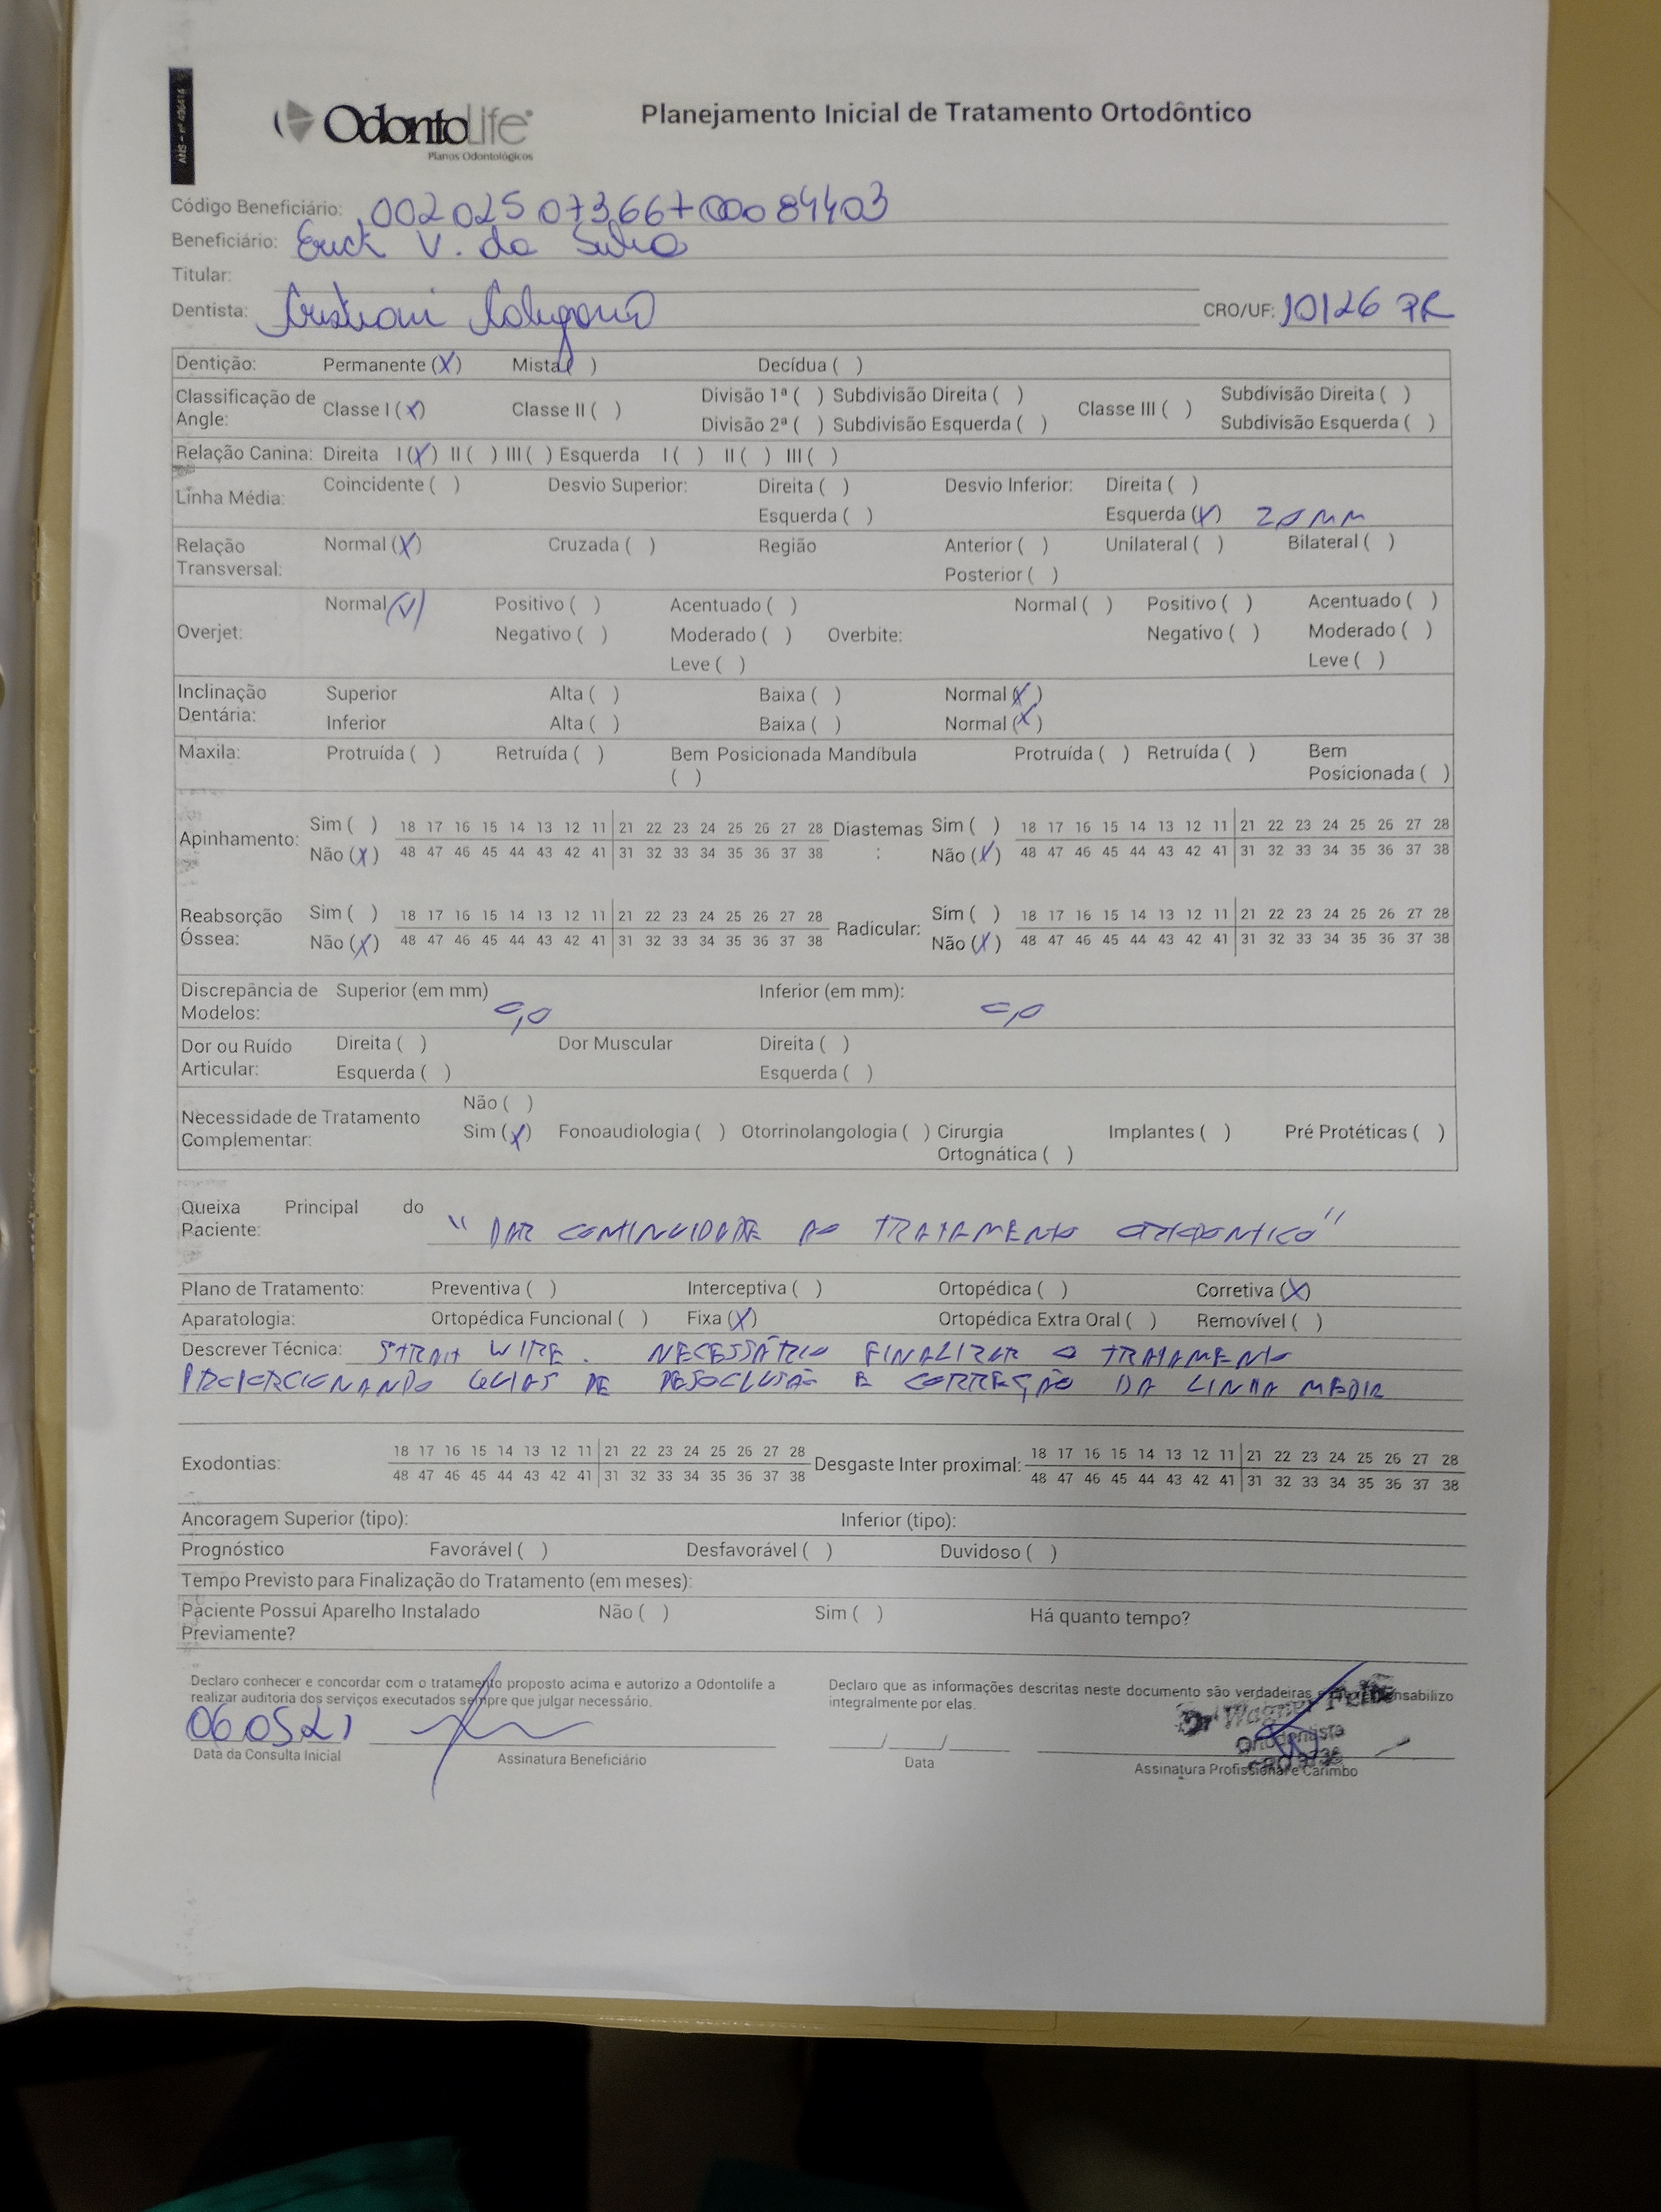 ANS - nº 406414
OdontoLife
Planos Odontológicos
Planejamento Inicial de Tratamento Ortodôntico
Código Beneficiário:
Beneficiário: Erick V. da Silva
Titular:
Dentista: Cristiani CRO/UF: 10126 PR
Dentição: Permanente (X) Mista ( ) Decídua ( )
Classificação de Angle: Classe I (X) Classe II ( ) Divisão 1ª ( ) Subdivisão Direita ( ) Classe III ( ) Subdivisão Direita ( )
Divisão 2ª ( ) Subdivisão Esquerda ( ) Subdivisão Esquerda ( )
Relação Canina: Direita I (X) II ( ) III ( ) Esquerda I ( ) II ( ) III ( )
Linha Média: Coincidente ( ) Desvio Superior: Direita ( ) Desvio Inferior: Direita ( )
Esquerda ( ) Esquerda (X) 2,0 MM
Relação Transversal: Normal (X) Cruzada ( ) Região Anterior ( ) Unilateral ( ) Bilateral ( )
Posterior ( )
Overjet: Normal (V) Positivo ( ) Acentuado ( ) Overbite: Normal ( ) Positivo ( ) Acentuado ( )
Negativo ( ) Moderado ( ) Negativo ( ) Moderado ( )
Leve ( ) Leve ( )
Inclinação Dentária: Superior Alta ( ) Baixa ( ) Normal (X)
Inferior Alta ( ) Baixa ( ) Normal (X)
Maxila: Protruída ( ) Retruída ( ) Bem Posicionada ( ) Mandíbula Protruída ( ) Retruída ( ) Bem Posicionada ( )
Apinhamento: Sim ( ) 18 17 16 15 14 13 12 11 21 22 23 24 25 26 27 28 Diastemas : Sim ( ) 18 17 16 15 14 13 12 11 21 22 23 24 25 26 27 28
Não (X) 48 47 46 45 44 43 42 41 31 32 33 34 35 36 37 38 Não (X) 48 47 46 45 44 43 42 41 31 32 33 34 35 36 37 38
Reabsorção Óssea: Sim ( ) 18 17 16 15 14 13 12 11 21 22 23 24 25 26 27 28 Radicular: Sim ( ) 18 17 16 15 14 13 12 11 21 22 23 24 25 26 27 28
Não (X) 48 47 46 45 44 43 42 41 31 32 33 34 35 36 37 38 Não (X) 48 47 46 45 44 43 42 41 31 32 33 34 35 36 37 38
Discrepância de Modelos: Superior (em mm) Inferior (em mm):
Dor ou Ruído Articular: Direita ( ) Dor Muscular Direita ( )
Esquerda ( ) Esquerda ( )
Necessidade de Tratamento Complementar: Não ( )
Sim (X) Fonoaudiologia ( ) Otorrinolangologia ( ) Cirurgia Ortognática ( ) Implantes ( ) Pré Protéticas ( )
Queixa Principal do Paciente: "DAR CONTINUIDADE AO TRATAMENTO ORTODONTICO"
Plano de Tratamento: Preventiva ( ) Interceptiva ( ) Ortopédica ( ) Corretiva (X)
Aparatologia: Ortopédica Funcional ( ) Fixa (X) Ortopédica Extra Oral ( ) Removível ( )
Descrever Técnica: WIRE. NECESSÁRIO FINALIZAR O TRATAMENTO
PROPORCIONANDO GUIAS DE DESOCLUSÃO E CORREÇÃO DA LINHA MEDIA
Exodontias: 18 17 16 15 14 13 12 11 21 22 23 24 25 26 27 28 Desgaste Inter proximal: 18 17 16 15 14 13 12 11 21 22 23 24 25 26 27 28
48 47 46 45 44 43 42 41 31 32 33 34 35 36 37 38 48 47 46 45 44 43 42 41 31 32 33 34 35 36 37 38
Ancoragem Superior (tipo): Inferior (tipo):
Prognóstico Favorável ( ) Desfavorável ( ) Duvidoso ( )
Tempo Previsto para Finalização do Tratamento (em meses):
Paciente Possui Aparelho Instalado Previamente? Não ( ) Sim ( ) Há quanto tempo?
Declaro conhecer e concordar com o tratamento proposto acima e autorizo a Odontolife a
realizar auditoria dos serviços executados sempre que julgar necessário.
Declaro que as informações descritas neste documento são verdadeiras
integralmente por elas.
06 05 21
Data da Consulta Inicial Assinatura Beneficiário
Dr Wagner
Ortodontista
Data
Assinatura Profissional e Carimbo